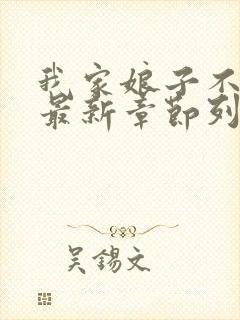 我家娘子不
最新章節列
吴錫文